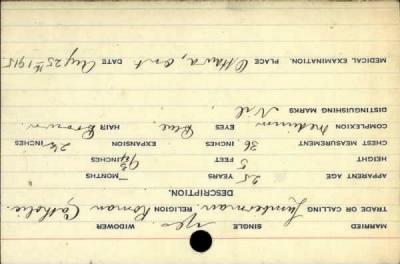 MARRIED SINGLE yes WIDOWER
TRADE OR CALLING Lumberman. RELIGION Roman Catholic.
DESCRIPTION.
APPARENT AGE 25 YEARS MONTHS
HEIGHT 5 FEET INCHES
CHEST MEASUREMENT 36 INCHES EXPANSION 2½ INCHES
COMPLEXION Medium EYES Blue HAIR Brown
DISTINGUISHING MARKS Nil
MEDICAL EXAMINATION. PLACE Ottawa, Ont DATE Aug 25th 1915.